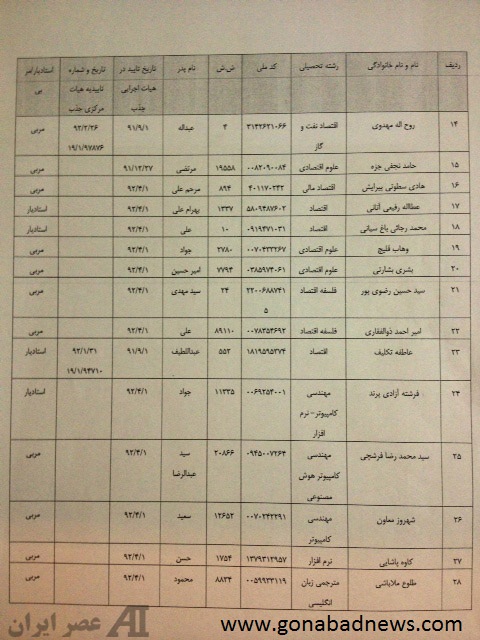 ردیف نام و نام خانوادگی رشته تحصیلی کد ملی ش.ش نام پدر تاریخ تایید در تاریخ و شماره استادیار/مر
هیات اجرایی تاییدیه هیات بی
جذب مرکزی جذب
۱۴ روح اله مهدوی اقتصاد نفت و ۳۱۴۲۶۲۱۰۶۶ ۳ عبداله ۹۱/۹/۱ ۹۲/۲/۲۶ مربی
گاز ۱۹/۱/۹۷۸۷۶
۱۵ حامد نجفی جزه علوم اقتصادی ۰۰۸۲۰۹۰۰۸۴ ۱۹۵۵۸ مرتضی ۹۱/۱۲/۲۷ مربی
۱۶ هادی سطوتی بیرایش اقتصاد مالی ۴۰۱۱۷۰۲۴۲ ۸۹۴ مرحم علی ۹۲/۴/۱ مربی
۱۷ عطااله رفیعی آتانی اقتصاد ۵۸۰۹۴۸۷۶۰۲ ۱۳۳۷ بهرام علی ۹۲/۴/۱ استادیار
۱۸ محمد رجائی باغ سیائی اقتصاد ۰۹۱۹۴۷۱۰۳۱ ۱۰ علی ۹۲/۴/۱ استادیار
۱۹ وهاب قلیچ علوم اقتصادی ۰۰۷۰۴۳۳۲۶۷ ۲۷۸۰ جواد ۹۲/۴/۱ مربی
۲۰ بشری بشارتی علوم اقتصادی ۰۳۸۵۹۷۴۰۶۱ ۷۷۹۴ امیر حسین ۹۲/۴/۱ مربی
۲۱ سید حسین رضوی پور فلسفه اقتصاد ۲۲۰۰۶۸۸۷۴۱ ۲۴ سید مهدی ۹۲/۴/۱ مربی
۵
۲۲ امیر احمد ذوالفقاری فلسفه اقتصاد ۰۰۷۸۳۵۴۶۹۲ ۸۹۱۱۰ علی ۹۲/۴/۱ مربی
۲۳ عاطفه تکلیف اقتصاد ۱۸۱۹۵۹۵۳۷۴ ۵۵۲ عبداللطیف ۹۱/۹/۱ ۹۲/۱/۳۱ استادیار
۱۹/۱/۹۴۷۱۰
۲۴ فرشته آزادی پرند مهندسی ۰۰۶۹۲۵۴۰۰۱ ۱۱۳۳۵ جواد ۹۲/۴/۱ استادیار
کامپیوتر- نرم
افزار
۲۵ سید محمد رضا فرشچی مهندسی ۰۹۴۵۰۰۷۲۶۳ ۲۰۸۶۶ سید ۹۲/۴/۱ مربی
کامپیوتر هوش عبدالرضا
مصنوعی
۲۶ شهروز معاون مهندسی ۰۰۷۰۲۴۲۲۹۱ ۱۲۶۵۲ سعید ۹۲/۴/۱ مربی
کامپیوتر
۲۷ کاوه پاشایی نرم افزار ۱۳۷۹۳۱۲۹۵۷ ۱۷۵۴ حسن ۹۲/۴/۱ مربی
۲۸ طلوع ملاباشی مترجمی زبان ۰۰۵۹۹۳۳۱۱۹ ۸۸۲۴ محمود ۹۲/۴/۱ مربی
انگلیسی
عصر ایران
www.gonabadnews.com